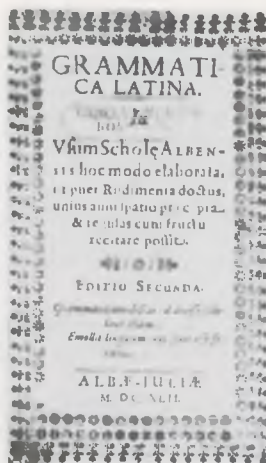 GRAMMATI-
CA LATINA.
In
Vsum Scholę ALBEN-
sis hoc modo elaborata,
ut puer Rudimenta doctus,
unius anni spatio
& regulas cum fructu
recitare possit.
EDITIO SECUNDA.
ALBÆ-JULIÆ
M. DC. XLII.